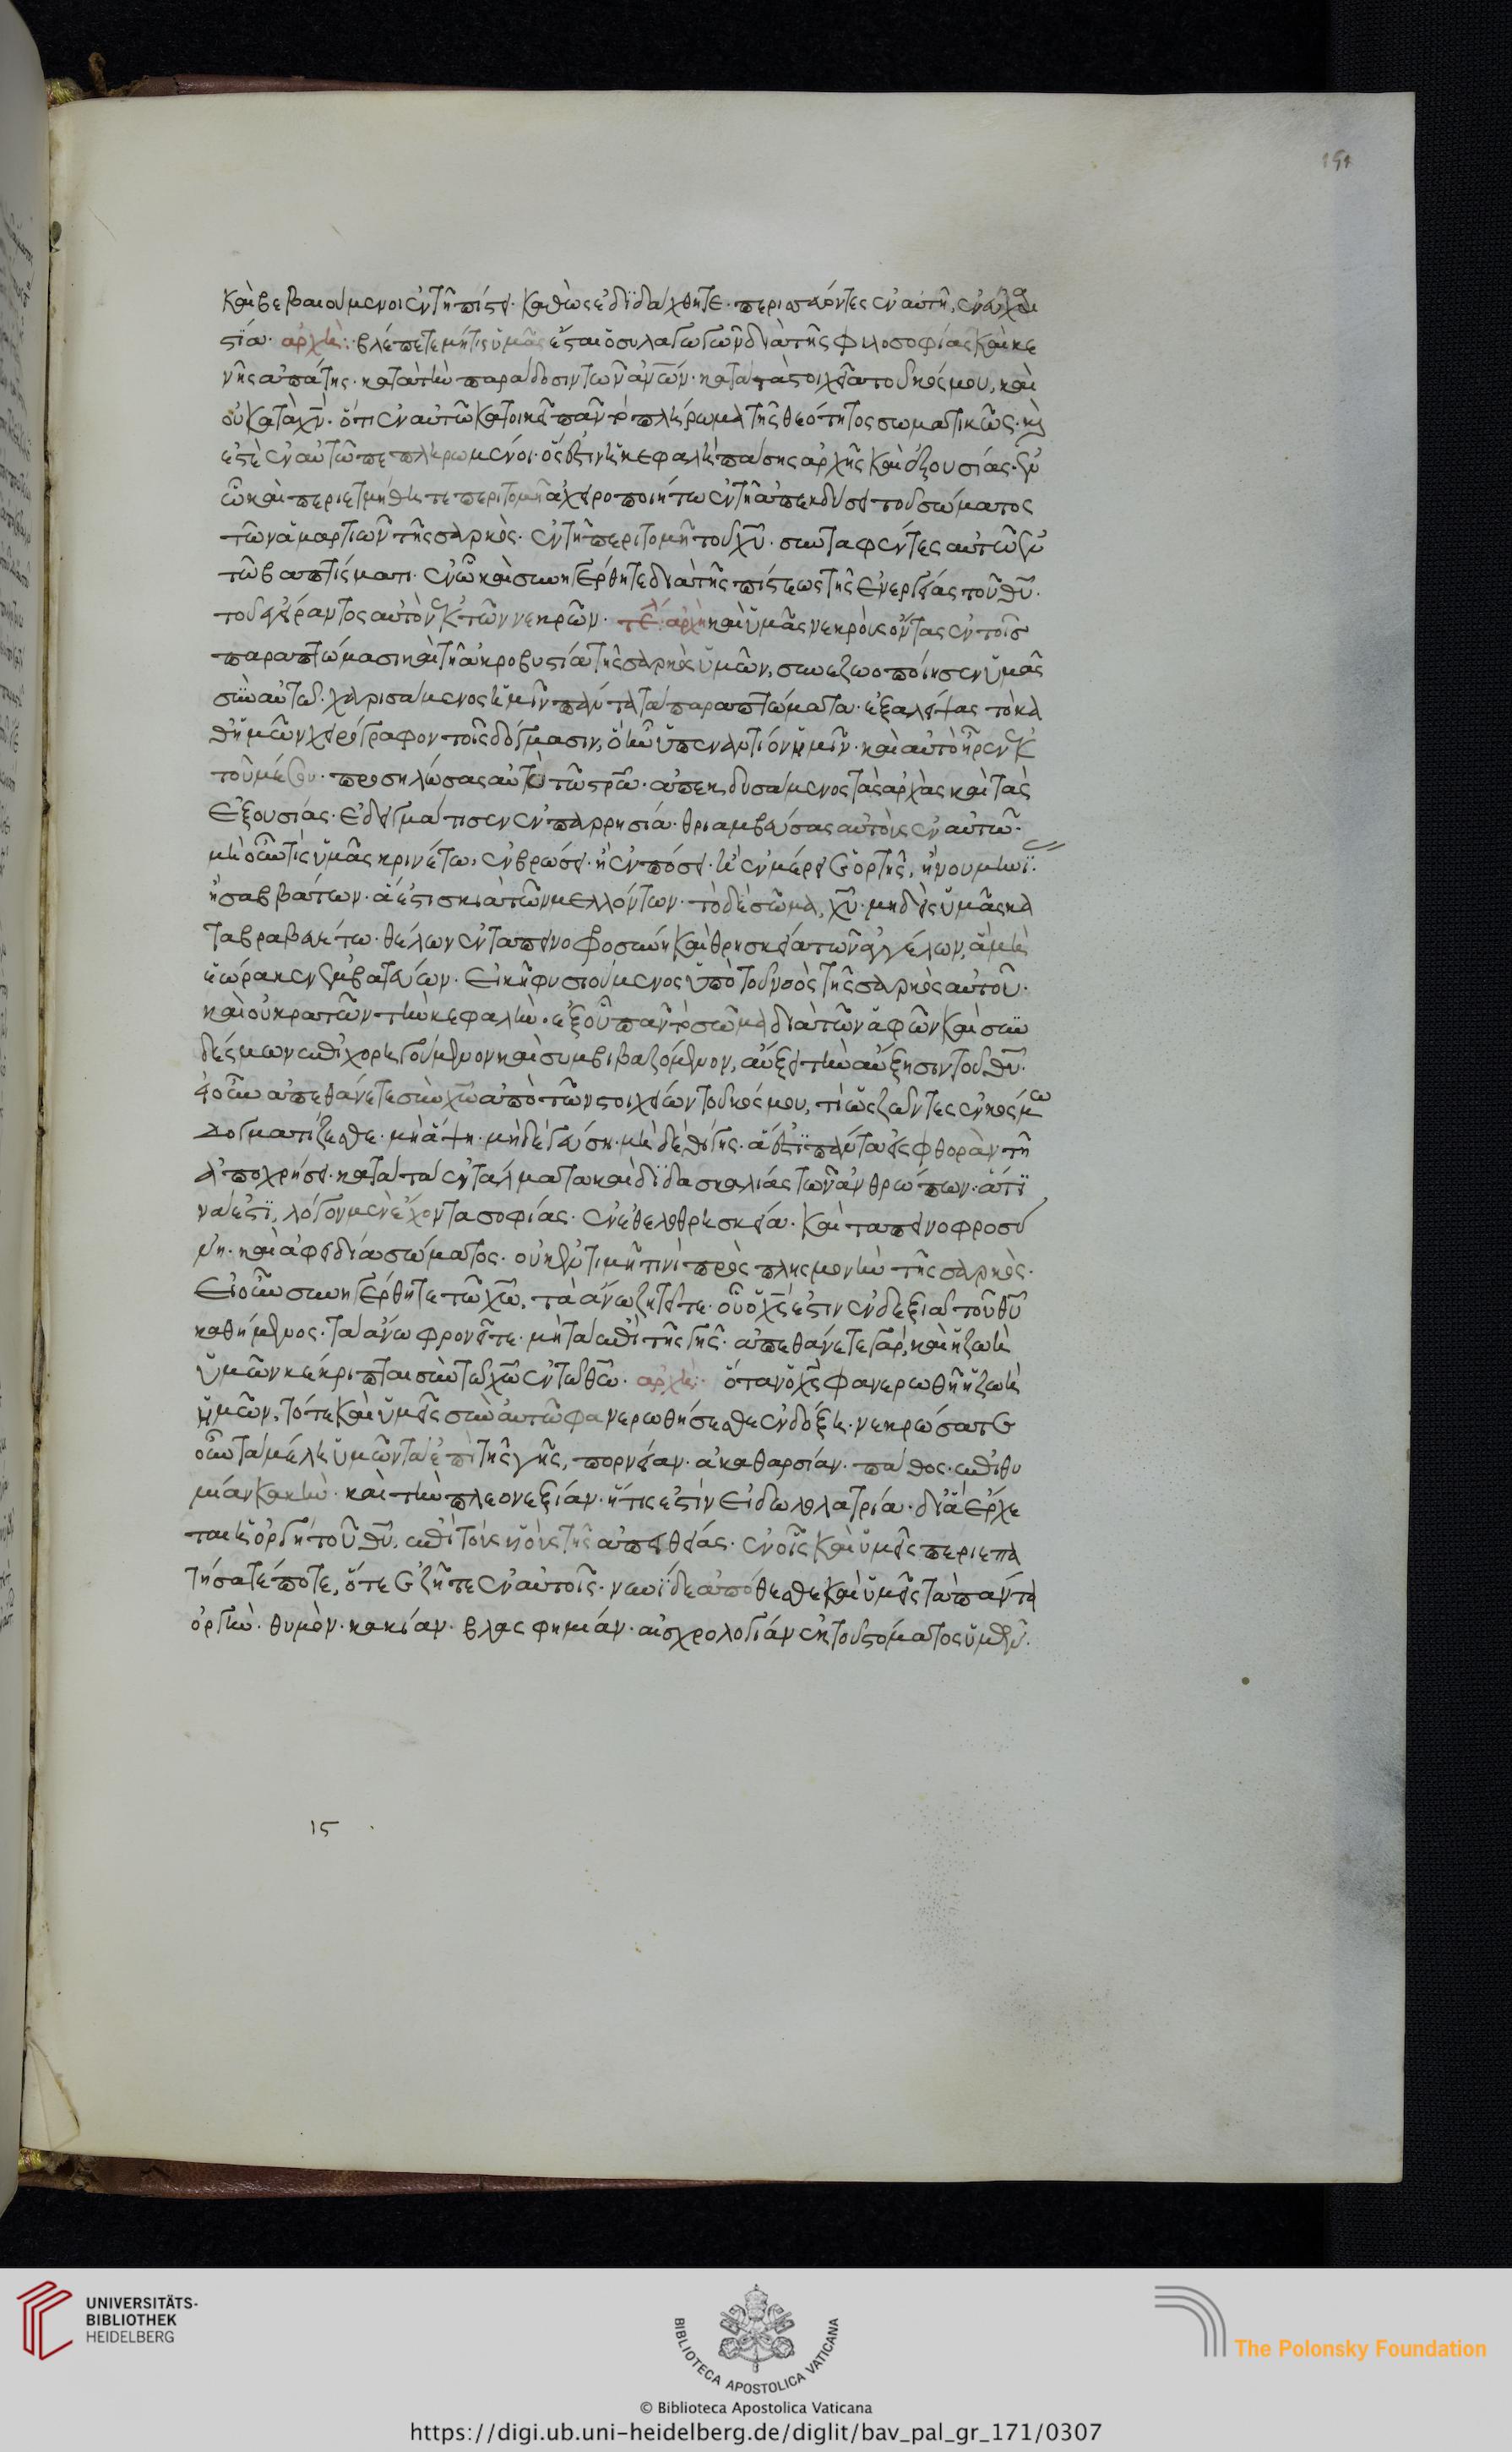 151
καὶ βεβαιούμενοι ἐν τῇ πίστει· καθὼς ἐδιδάχθητε· περισσεύοντες ἐν αὐτῇ, ἐν εὐχαρι
στία· ἀρχὴ: βλέπετε μή τις ὑμᾶς ἔσται ὁ συλαγωγῶν διὰ τῆς φιλοσοφίας καὶ κε
νῆς ἀπάτης· κατὰ τὴν παράδοσιν τῶν ἀνων· κατὰ τὰ στοιχεῖα τοῦ κόσμου, καὶ
οὐ κατὰ χν· ὅτι ἐν αὐτῷ κατοικεῖ πᾶν τὸ πλήρωμα τῆς θεότητος σωματικῶς· καὶ
ἐστὲ ἐν αὐτῷ πεπληρωμένοι· ὅς ἐστιν ἡ κεφαλὴ πάσης ἀρχῆς καὶ ἐξουσίας· ἐν
ᾧ καὶ περιετμήθητε περιτομῇ ἀχειροποιήτω ἐν τῇ ἀπεκδύσει τοῦ σώματος
τῶν ἁμαρτιῶν τῆς σαρκὸς· ἐν τῇ περιτομῇ τοῦ χυ· συνταφέντες αὐτῷ ἐν
τῷ βαπτίσματι· ἐν ᾧ καὶ συνηγέρθητε διὰ τῆς πίστεως τῆς ἐνεργείας τοῦ θυ·
τοῦ ἐγείραντος αὐτὸν ἐκ τῶν νεκρῶν· τελ: ἀρχὴ καὶ ὑμᾶς νεκροὺς ὄντας ἐν τοῖς
παραπτώμασι καὶ τῇ ἀκροβυστία τῆς σαρκὸς ὑμῶν, συνεζωοποίησεν ὑμᾶς
σὺν αὐτῶ· χαρισάμενος ἡμῖν πάντα τὰ παραπτώματα· ἐξαλείψας τὸ κα
θ' ἡμῶν χειρόγραφον τοῖς δόγμασιν, ὃ ἦν ὑπεναντίον ἡμῖν· καὶ αὐτὸ ἦρεν ἐκ
τοῦ μέσου· προσηλώσας αὐτὸ τῷ στρω· ἀπεκδυσάμενος τὰς ἀρχὰς καὶ τὰς
ἐξουσίας· ἐδειγμάτισεν ἐν παρρησία· θριαμβεύσας αὐτοὺς ἐν αὐτῷ·
μὴ οὖν τις ὑμᾶς κρινέτω, ἐν βρώσει· ἢ ἐν πόσει· ἢ ἐν μέρει ἑορτῆς, ἢ νουμηνί
ἢ σαββάτων· ἅ ἐστι σκιὰ τῶν μελλόντων· τὸ δὲ σῶμα, χυ· μηδεὶς ὑμᾶς κα
ταβραβευέτω· θέλων ἐν ταπεινοφροσύνη καὶ θρησκεία τῶν ἀγγέλων, ἃ μὴ
ἑώρακεν ἐμβατεύων· εἰκῇ φυσιούμενος ὑπὸ τοῦ νοὸς τῆς σαρκὸς αὐτοῦ·
καὶ οὐ κρατῶν τὴν κεφαλὴν· ἐξ οὗ πᾶν τὸ σῶμα διὰ τῶν ἁφῶν καὶ συν
δέσμων ἐπιχορηγούμενον καὶ συμβιβαζόμενον, αὔξει τὴν αὔξησιν τοῦ θυ·
εἰ οὖν ἀπεθάνετε σὺν χω ἀπὸ τῶν στοιχείων τοῦ κόσμου, τί ὡς ζῶντες ἐν κόσμω
δογματίζεσθε· μὴ ἅψη· μηδὲ γεύση· μηδὲ θίγης· ἅ ἐστι πάντα εἰς φθορὰν τῇ
ἀποχρήσει· κατὰ τὰ ἐντάλματα καὶ διδασκαλίας τῶν ἀνθρώπων· ἅτι
νά ἐστι, λόγον μὲν ἔχοντα σοφίας· ἐν ἐθελοθρησκεία· καὶ ταπεινοφροσύ
νη· καὶ ἀφειδία σώματος· οὐκ ἐν τιμῇ τινὶ πρὸς πλησμονὴν τῆς σαρκὸς·
Εἰ οὖν συνηγέρθητε τῷ χω, τὰ ἄνω ζητεῖτε· οὗ ὁ χς ἐστιν ἐν δεξιᾷ τοῦ θυ
καθήμενος· τὰ ἄνω φρονεῖτε· μὴ τὰ ἐπὶ τῆς γῆς· ἀπεθάνετε γὰρ, καὶ ἡ ζωὴ
ὑμῶν κέκρυπται σὺν τῶ χω ἐν τῶ θω· ἀρχὴ: ὅταν ὁ χς φανερωθῇ ἡ ζωὴ
ἡμῶν, τότε καὶ ὑμεῖς σὺν αὐτῷ φανερωθήσεσθε ἐν δόξη· νεκρώσατε
οὖν τὰ μέλη ὑμῶν τὰ ἐπὶ τῆς γῆς, πορνείαν· ἀκαθαρσίαν· πάθος· ἐπιθυ
μίαν κακὴν· καὶ τὴν πλεονεξίαν· ἥτις ἐστὶν εἰδωλολατρία· δι' ἃ ἔρχε
ται ἡ ὀργὴ τοῦ θυ, ἐπὶ τοὺς υἱοὺς τῆς ἀπειθείας· ἐν οἷς καὶ ὑμεῖς περιεπα
τήσατέ ποτε, ὅτε ἐζῆτε ἐν αὐτοῖς· νυνὶ δὲ ἀπόθεσθε καὶ ὑμεῖς τὰ πάντα
ὀργὴν· θυμὸν· κακίαν· βλασφημίαν· αἰσχρολογίαν ἐκ τοῦ στόματος ὑμῶν·
15
UNIVERSITÄTS-
BIBLIOTHEK
HEIDELBERG
BIBLIOTECA APOSTOLICA VATICANA
The Polonsky Foundation
© Biblioteca Apostolica Vaticana
https://digi.ub.uni-heidelberg.de/diglit/bav_pal_gr_171/0307